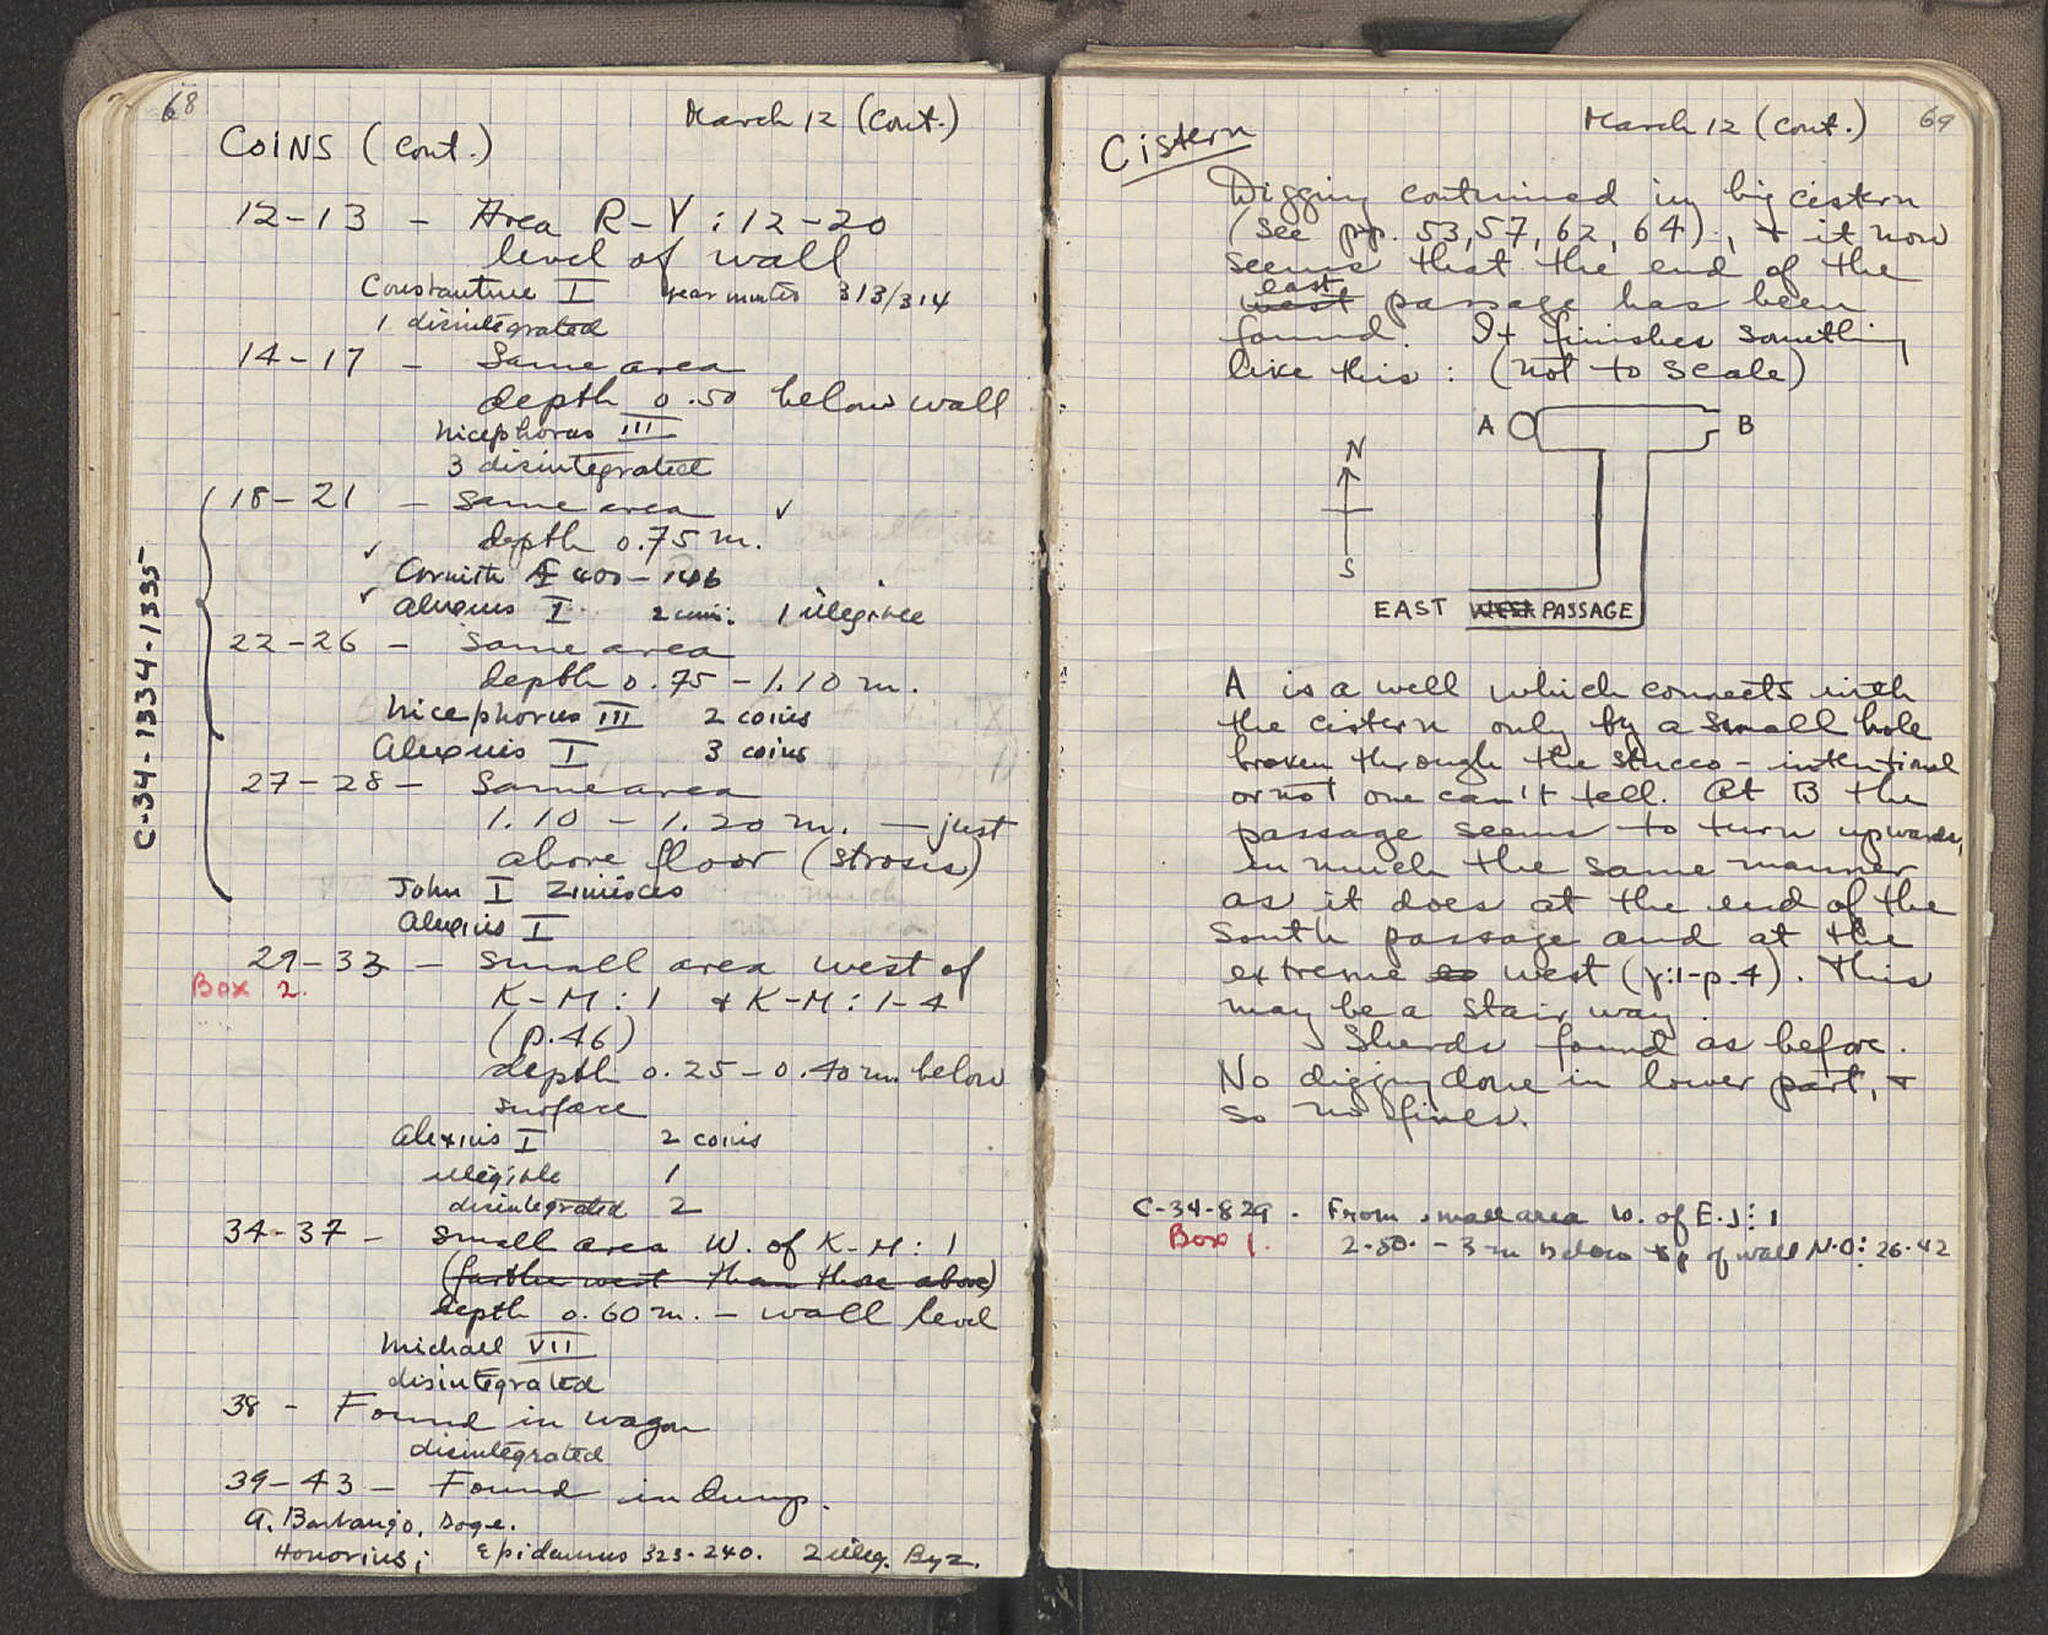 68
March 12 (cont.)
COINS (cont.)
12-13 - Area R-Y : 12-20
level of wall
Constantine I 313/314
1 disintegrated
14-17 - Same area
depth 0.50 below wall
Nicephorus III
3 disintegrated
18-21 - Same area ✓
depth 0.75 m.
✓ Corinth 400-146
✓ Alexius I 2 coins: 1 illegible
22-26 - Same area
depth 0.75 - 1.10 m.
Nicephorus III 2 coins
Alexius I 3 coins
27-28 - Same area
1.10 - 1.20 m. - just
above floor (strosis)
John I Zimisces
Alexius I
C-34-1334-1335
29-33 - Small area west of
Box 2.
K-M : 1 & K-M : 1-4
(p.46)
depth 0.25 - 0.40 m. below
surface
Alexius I 2 coins
illegible 1
disintegrated 2
34-37 - Small area W. of K-M : 1
(farther west than those above)
depth 0.60 m. - wall level
Michael VII
disintegrated
38 - Found in wagon
disintegrated
39-43 - Found in dump.
A. Barbarigo, Doge.
Honorius; Epidamnus 323-240. 2 illeg. Byz.
March 12 (cont.) 69
Cistern
Digging continued in big cistern
(see pp. 53, 57, 62, 64)., & it now
seems that the end of the
east
west passage has been
found. It finishes something
like this : (not to scale)
A B
N
S
EAST WEST PASSAGE
A is a well which connects with
the cistern only by a small hole
broken through the stucco - intentional
or not one can't tell. At B the
passage seems to turn upwards,
in much the same manner
as it does at the end of the
South passage and at the
extreme west (γ:1-p.4). This
may be a stairway.
Sherds found as before.
No digging done in lower part, &
so no fines.
C-34-829. From small area W. of E-J: 1
Box 1.
2.50. - 3 m below top of wall N-O: 26-42